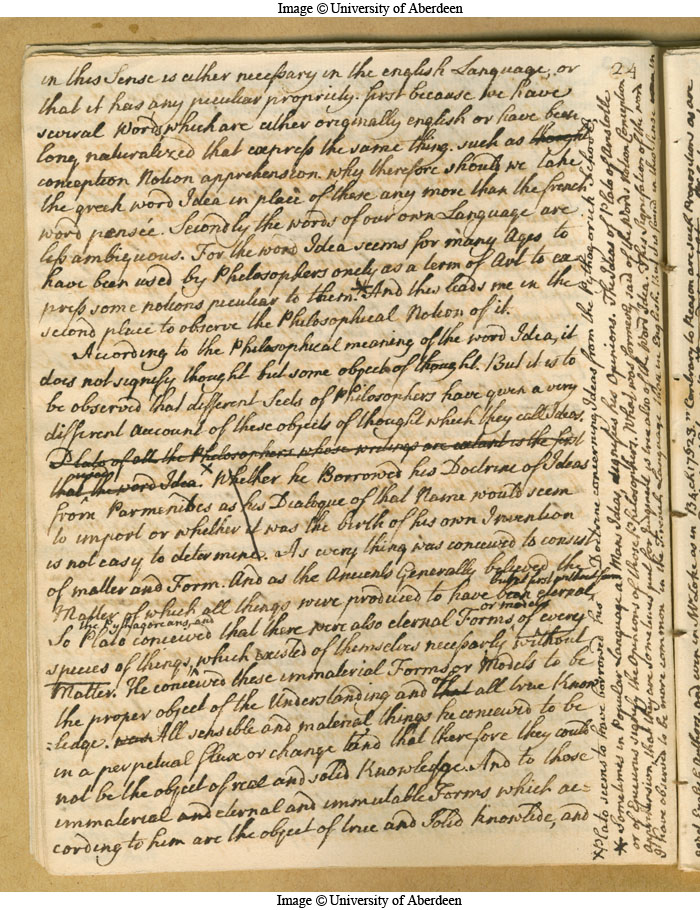 Image © University of Aberdeen
24
in this Sense is either necessary in the english Language, or
that it has any peculiar propriety. first because we have
several words which are either originally english or have been
long naturalized that express the same thing. such as thought
conception Notion apprehension. why therefore should we take
the greek word Idea in place of these any more than the french
word pensée. Secondly the words of our own Language are
less ambiguous. For the word Idea seems for many Ages to
have been used by Philosophers onely as a term of Art to ex
press some notions peculiar to them.* And this leads me in the
second place to observe the Philosophical Notion of it.
According to the Philosophical meaning of the word Idea, it
does not signify thought but some object of thought. But it is to
be observed that different Sects of Philosophers have given a very
different account of these objects of thought which they call Ideas.
Plato of all the Philosophers whose writings are extant is the first
that the word Idea. × Whether he Borrowed his Doctrine of Ideas
from Parmenides as his Dialogue of that Name would seem
to import or whether it was the birth of his own Invention
is not easy to determine. As every thing was conceived to consist
of matter and Form. And as the Ancients Generally believed the
first
Matter of which all things were produced to have been eternal
or models
So Plato conceived that there were also eternal Forms of every
the Pythagoreans, and
species of things, which existed of themselves necessarly without
Matter. He conceived these immaterial Forms or Models to be
the proper object of the Understanding and that all true Know
=ledge. was All sensible and material things he conceived to be
in a perpetual flux or change and that therefore they could
not be the object of real and solid Knowledge. And to those
immaterial and eternal and immutable Forms which ac=
cording to him are the object of true and solid knowlede, and
× Plato seems to have borrowed his Doctrine concerning Ideas from the Pythagorick
* Sometimes in Popular Language a Mans Ideas signifies his Opinions. The Ideas of Plato of Aristotle
or of Epicurus signify the Opinions of those Philosophers. What was formerly said of the Words Notion Conception
Apprehension, that they are sometimes put for Judgment is true also of the Word Idea. This signification of the word
I have observed to be more common in the French Language than in English. But it is found in that sense in
Image © University of Aberdeen